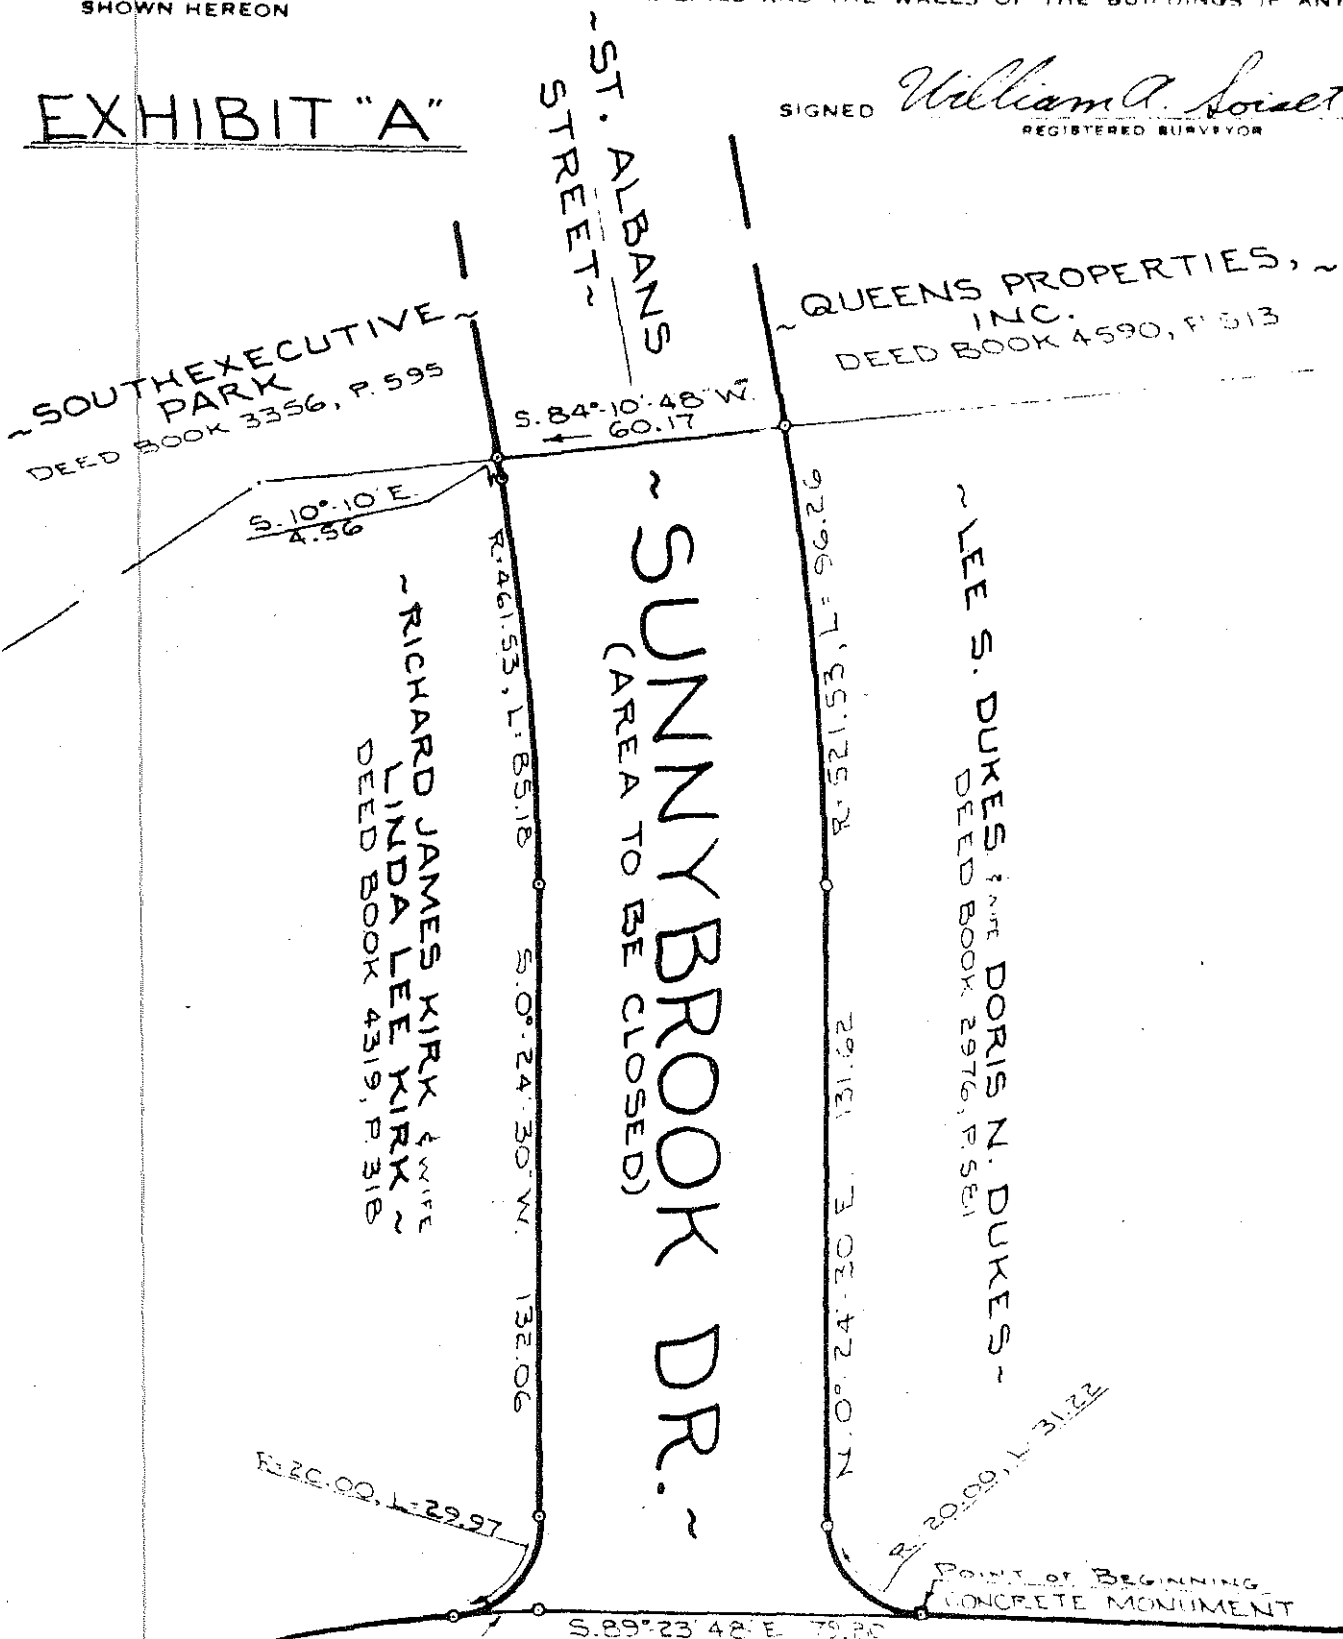 SHOWN HEREON
AND THE WALLS OF THE BUILDINGS IF ANY
EXHIBIT "A"
SIGNED William A.
REGISTERED SURVEYOR
~ST. ALBANS
STREET~
~SOUTHEXECUTIVE~
PARK
DEED BOOK 3356, P. 595
~QUEENS PROPERTIES,~
INC.
DEED BOOK 4590, P 513
S. 84°-10'-48" W.
60.17
S. 10°-10' E.
4.56
R=461.53, L=85.18
R=521.53, L=96.26
~SUNNYBROOK DR.~
(AREA TO BE CLOSED)
~RICHARD JAMES KIRK & WIFE
LINDA LEE KIRK~
DEED BOOK 4319, P. 318
~LEE S. DUKES & DORIS N. DUKES~
DEED BOOK 2976, P. 581
S. 0°-24'-30" W. 132.06
N. 0°-24'-30 E. 131.62
R=20.00, L=29.97
R=20.00, L=31.22
POINT OF BEGINNING
CONCRETE MONUMENT
S. 89°-23'48" E 79.20